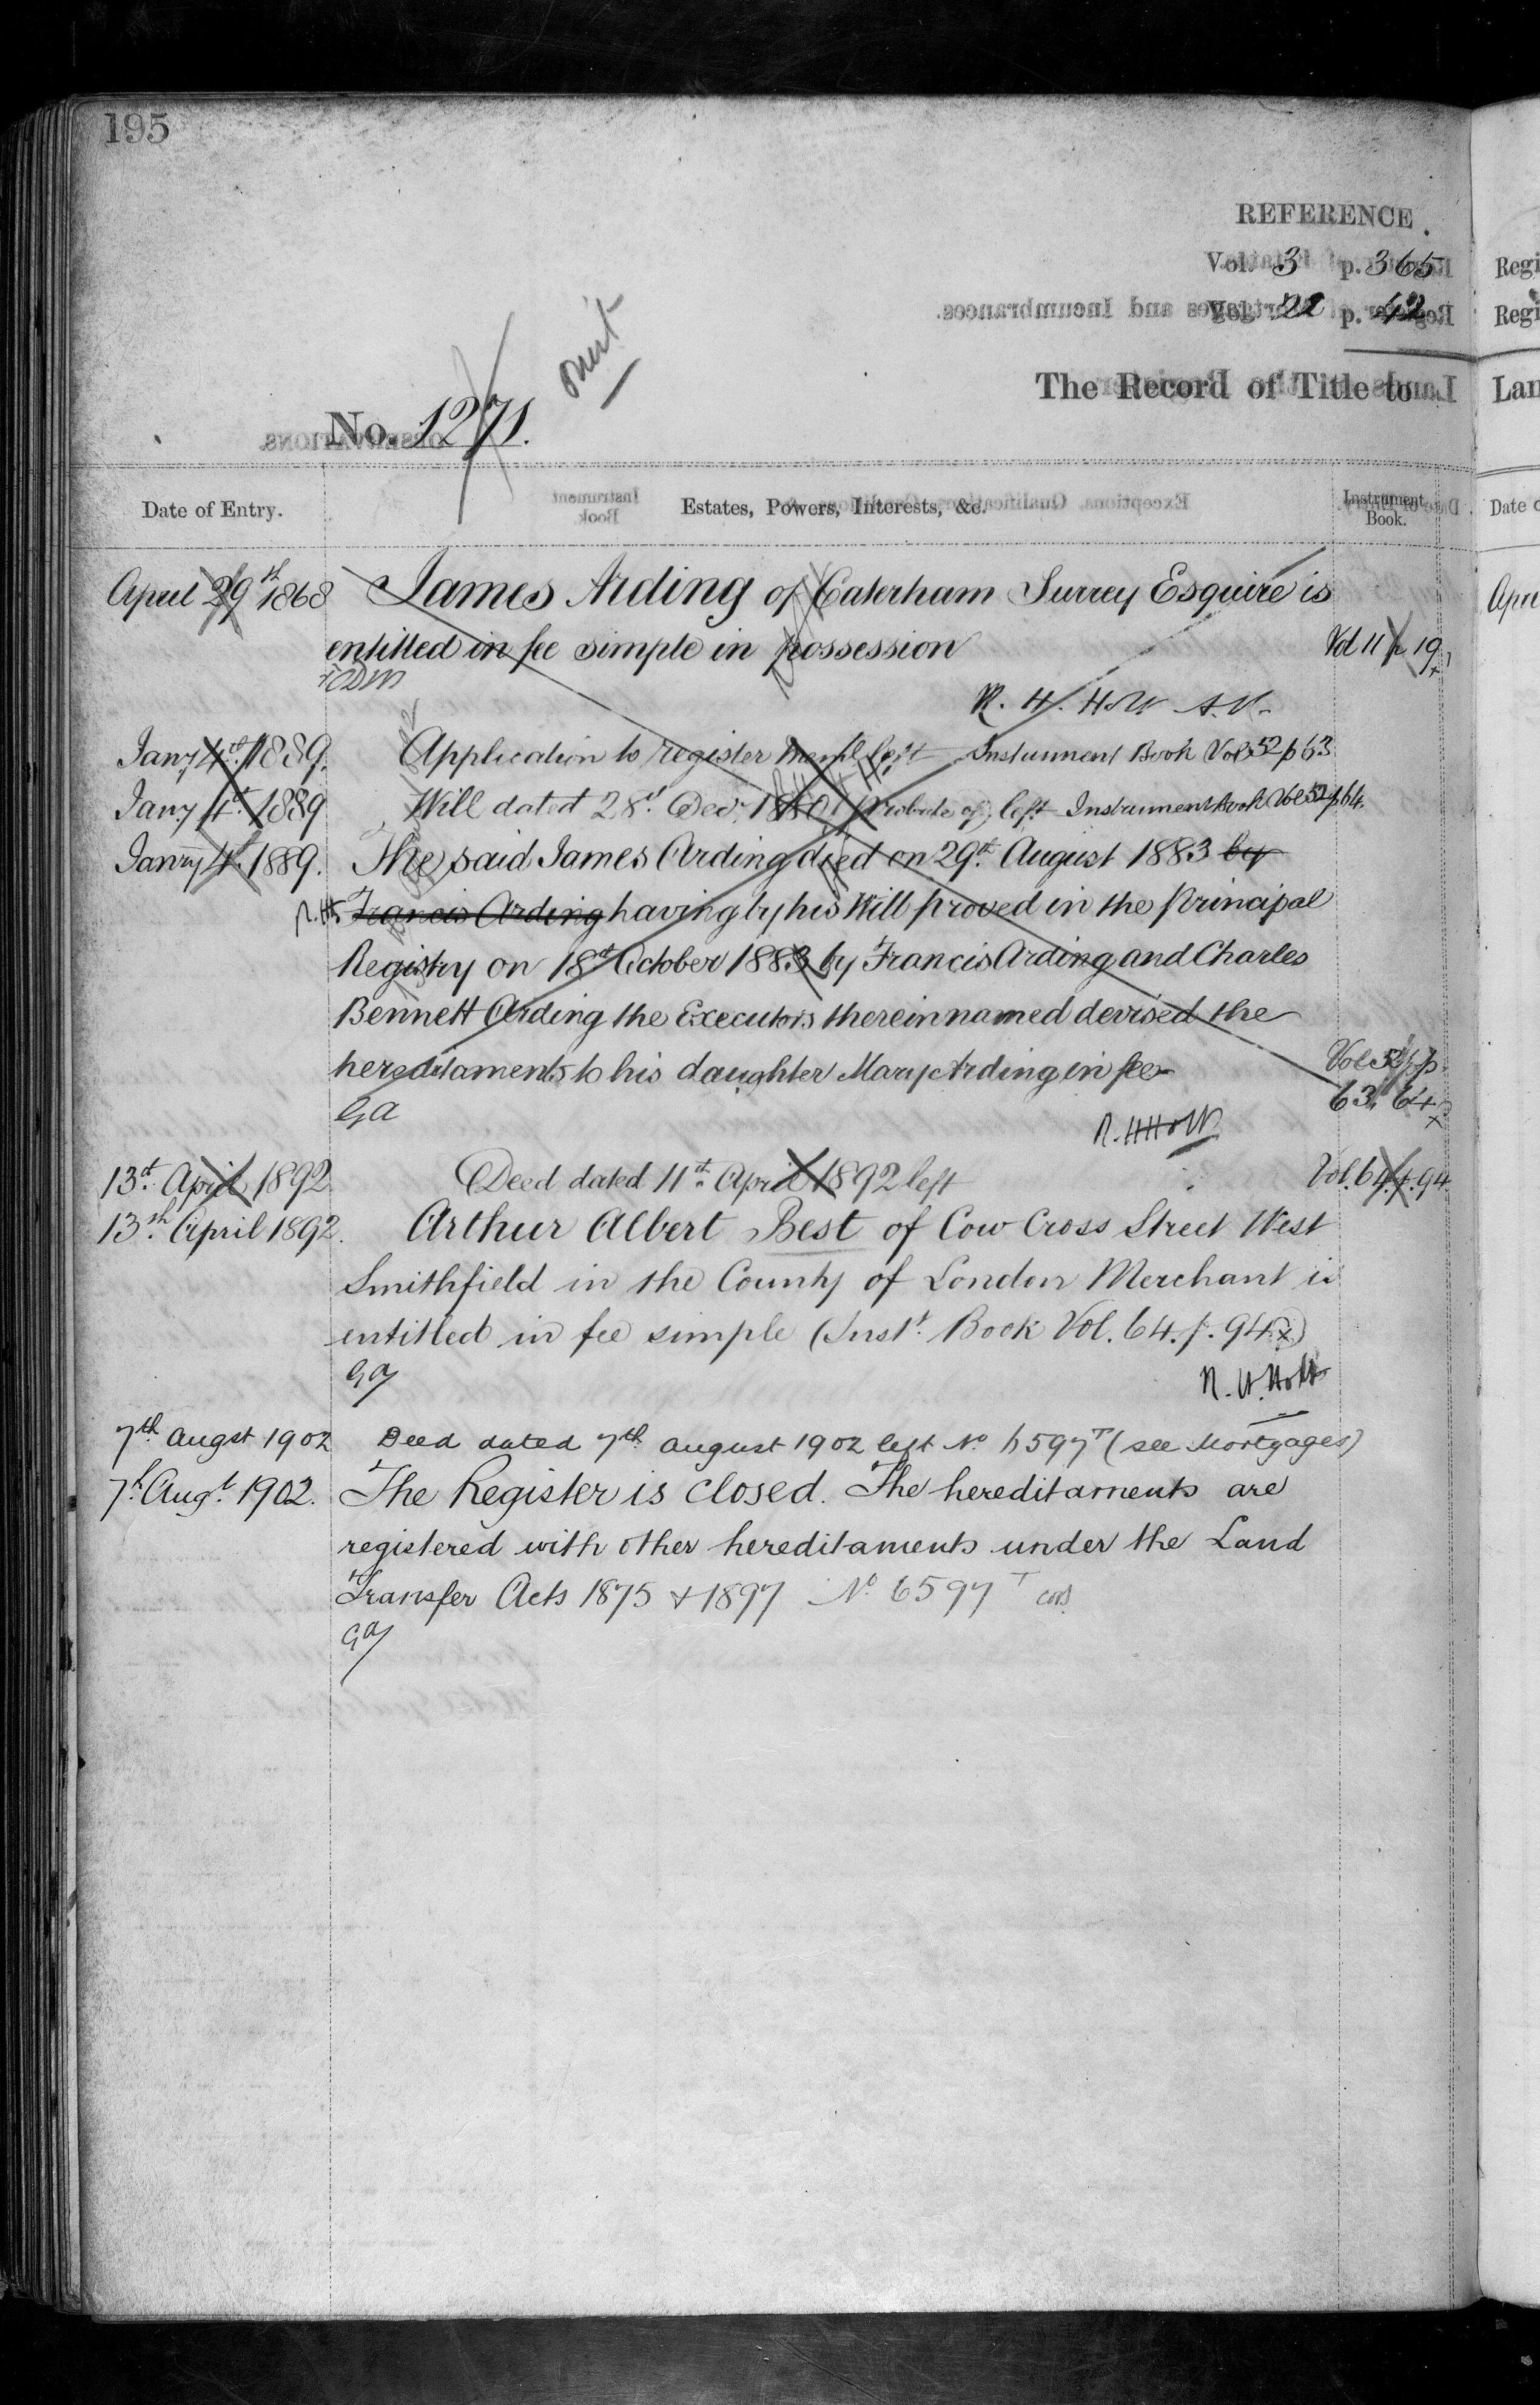 195
REFERENCE
Vol. 3 p. 365
Vol. 22 p. 42
The Record of Title to
omit
No. 1271.
Date of Entry. Estates, Powers, Interests, &c. Instrument Book.
April 29th 1868 James Arding of Caterham Surrey Esquire is
entitled in fee simple in possession Vol 11 p 19
R. H. Holt A.R.
Jany 4th 1889. Application to register left Instrument Book Vol 52 p 63
Jany 4th 1889 Will dated 28th Decr 1880 (probate of) left Instrument Book Vol 52 p 64.
Janry 4th 1889. The said James Arding died on 29th August 1883 by
R.H. Francis Arding having by his Will proved in the Principal
Registry on 18th October 1883 by Francis Arding and Charles
Bennett Arding the Executors therein named devised the
hereditaments to his daughter Mary Arding in fee Vol 52 pp
63, 64
GA
R. H Holt
13th April 1892 Deed dated 11th April 1892 left Vol. 64 p. 94
13th April 1892. Arthur Albert Best of Cow Cross Street West
Smithfield in the County of London Merchant is
entitled in fee simple (Inst. Book Vol. 64. p. 94)
GA
R. H. Holt
7th Augst 1902 Deed dated 7th August 1902 left No 6597T (see Mortgages)
7th Augt 1902. The Register is closed. The hereditaments are
registered with other hereditaments under the Land
Transfer Acts 1875 & 1897 No 6597T
GA
Regi
Regi
Lan
Date o
Apri